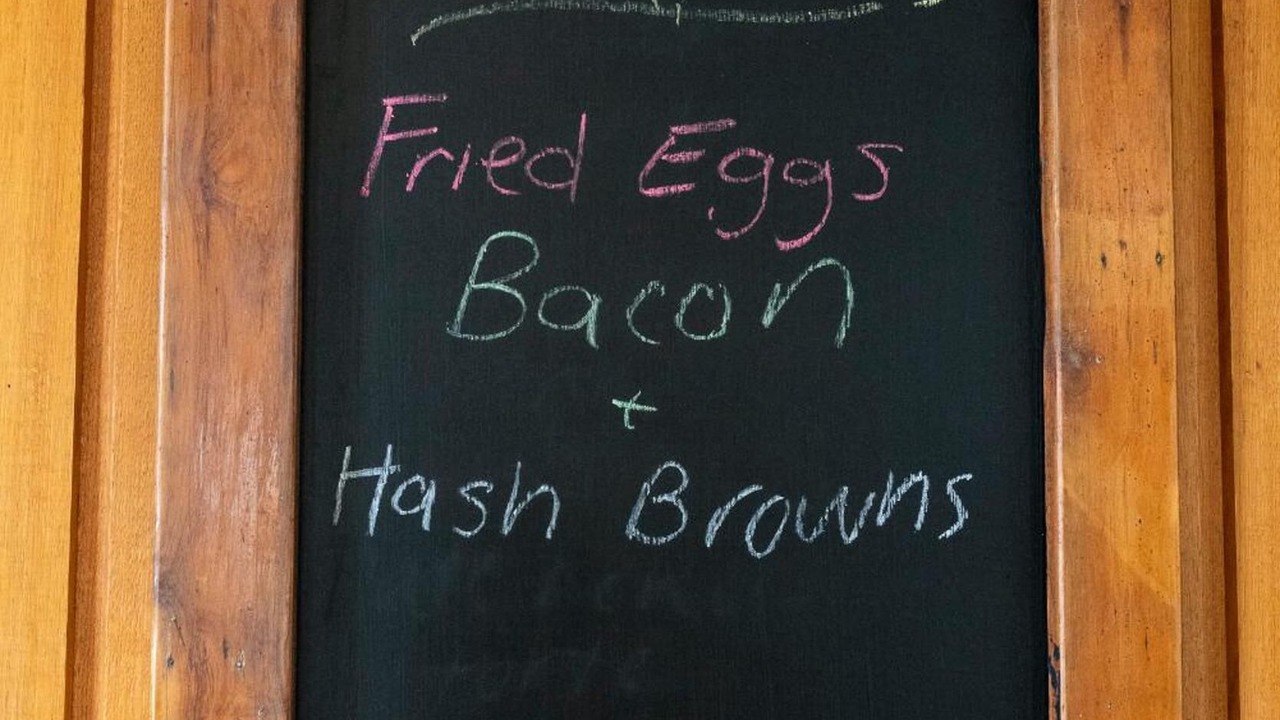 Fried Eggs
Bacon
+
Hash Browns